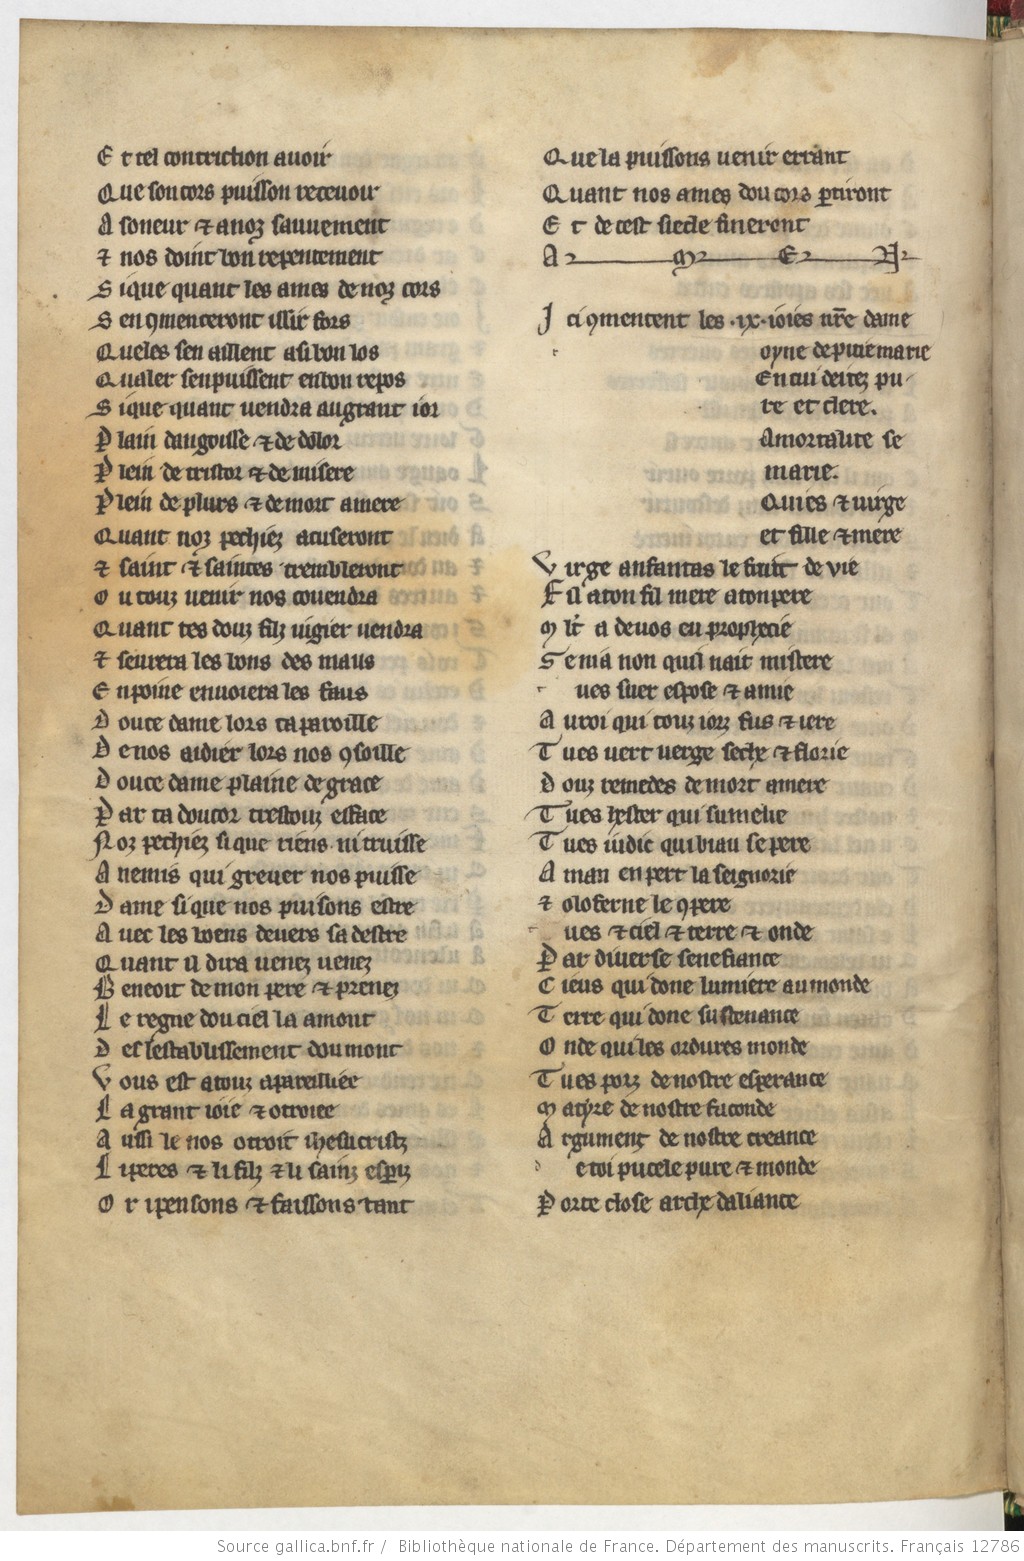 E t tel contriction auoir
Que son cors puisson receuoir
A soneur ⁊ a noz sauuement
⁊ nos doint bon repentement
S i que quant les ames de noz cors
S en ꝯmenceront issir fors
Queles sen aillent a si bon los
Qualer senpuissent en bon repos
S i que quant uendra au grant ior
P lain dangoisse ⁊ de dolor
P lein de tristor ⁊ de misere
P lein de plurs ⁊ de mort amere
Quant noz pechiez acuseront
⁊ saint ⁊ saintes trembleront
O u touz uenir nos couendra
Quant tes douz filz uigier uendra
⁊ seurera les bons des maus
E npoine enuoiera les faus
D ouce dame lors taparoille
D e nos aidier lors nos ꝯsoille
D ouce dame plaine de grace
P ar ta doucor trestouz efface
Noz pechiez si que riens ni truisse
A nemis qui greuer nos puisse
D ame si que nos puisons estre
A uec les boens deuers sa destre
Quant il dira uenez uenez
B eneoit de mon pere ⁊ prenez
L e regne dou ciel la amont
D es lestablissement dou mont
V ous est a touz apareilliee
L a grant ioie ⁊ otroiee
A ussi le nos otroit ihesucristz
L i peres ⁊ li filz ⁊ li sainz esperiz
O r i pensons ⁊ faissons tant
Que la puissons uenir errant
Quant nos ames dou cors ꝑtiront
E t de cest siecle fineront
A M E N
I ci ꝯmentent les .ix. ioies nr̄e dame
oyne de pitie marie
En cui deitez pu
re et clere.
A mortalite se
marie.
Qui es ⁊ uirge
et fille ⁊ mere
V irge anfantas le fruit de vie
F il a ton fil mere a ton pere
M lt a de uos en prophecie
S e nia non quil nait mistere
ues suer espose ⁊ amie
A u roi qui touz iorz fus ⁊ iere
T u es vert uerge seche ⁊ florie
D ouz remedes de mort amere
T u es hester qui sumelie
T u es iudic qui biau se pere
A man en pert la seignorie
⁊ oloferne le ꝯpere
ues ⁊ ciel ⁊ terre ⁊ onde
P ar diuerse senefiance
C ieus qui done lumiere au monde
T erre qui done sustenance
O nde qui les ordures monde
T u es porz de nostre esperance
M atyre de nostre faconde
A rgument de nostre creance
e toi pucele pure ⁊ monde
P orte close arche daliance
Source gallica.bnf.fr / Bibliothèque nationale de France. Département des manuscrits. Français 12786